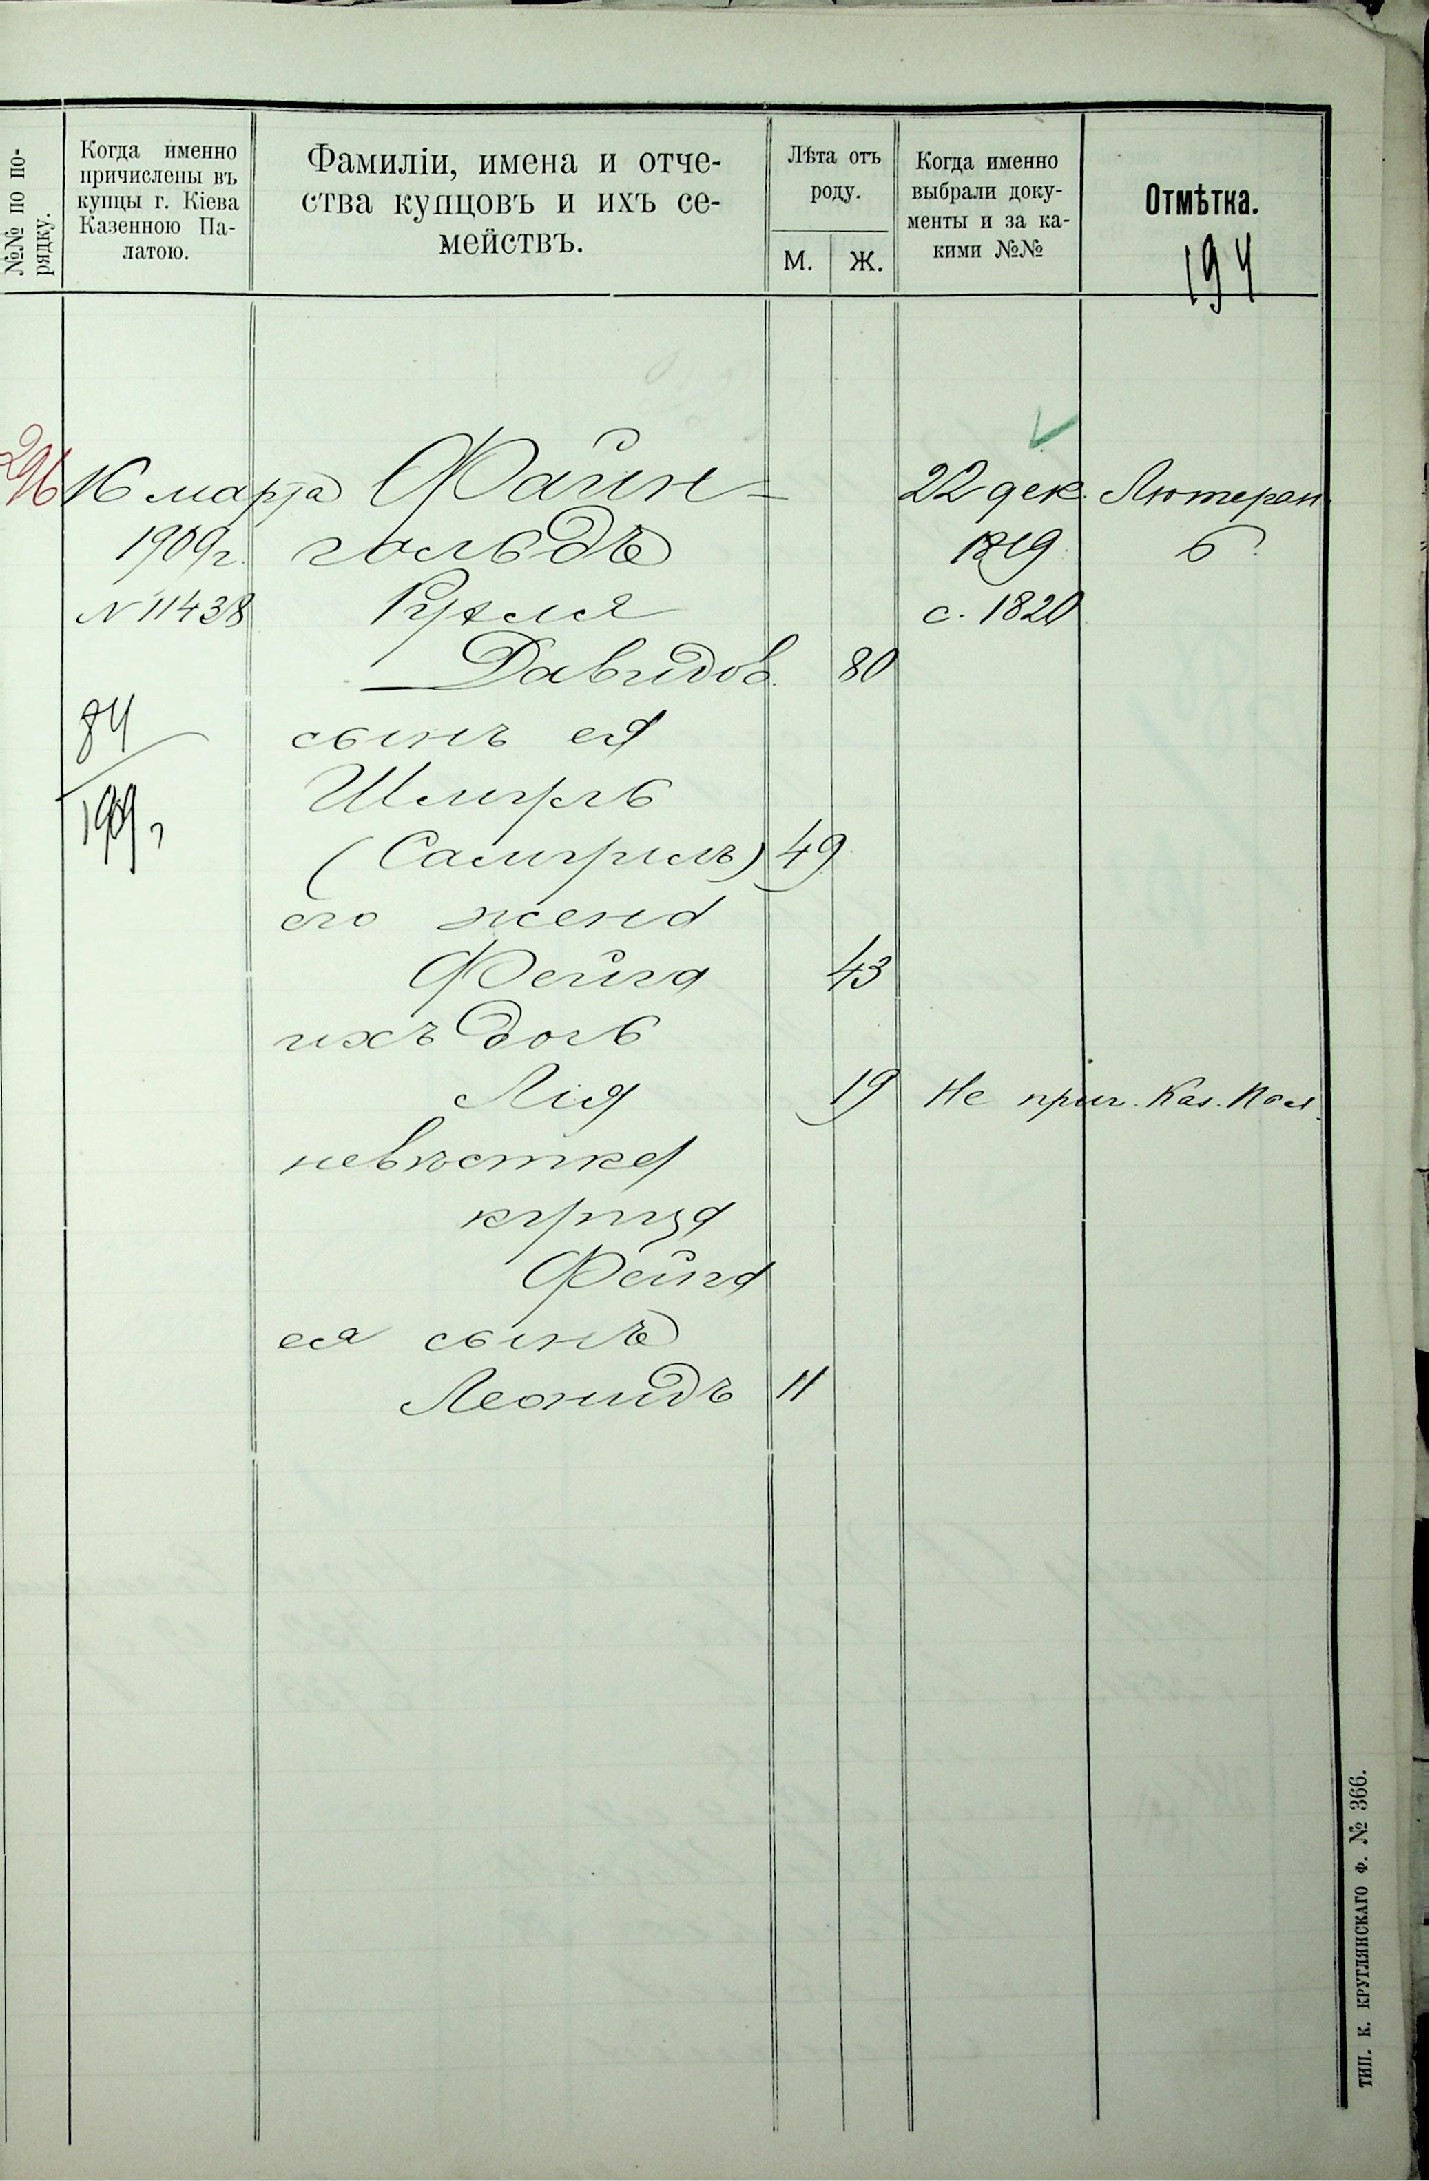 №№ по по-
рядку.
Когда именно
причислены въ
купцы г. Кіева
Казенною Па-
латою.
Фамиліи, имена и отче-
ства купцовъ и ихъ се-
мействъ.
Лѣта отъ
роду.
М.
Ж.
Когда именно
выбрали доку-
менты и за ка-
кими №№
Отмѣтка.
194
296
16 марта
1909 г.
N 11438
84
1909 г
Файн-
гольдъ
Рухля
Давидов. 80
сынъ ея
Шмуль
(Самуилъ) 49
его жена
Фейга 43
ихъ дочь
Лія 19 Не прич. Каз. Пал.
невѣстка
купца
Фейга
ея сынъ
Леонидъ 11
22 дек.
с. 1820
Лютеран.
6
ТИП. К. КРУГЛЯНСКАГО Ф. № 366.